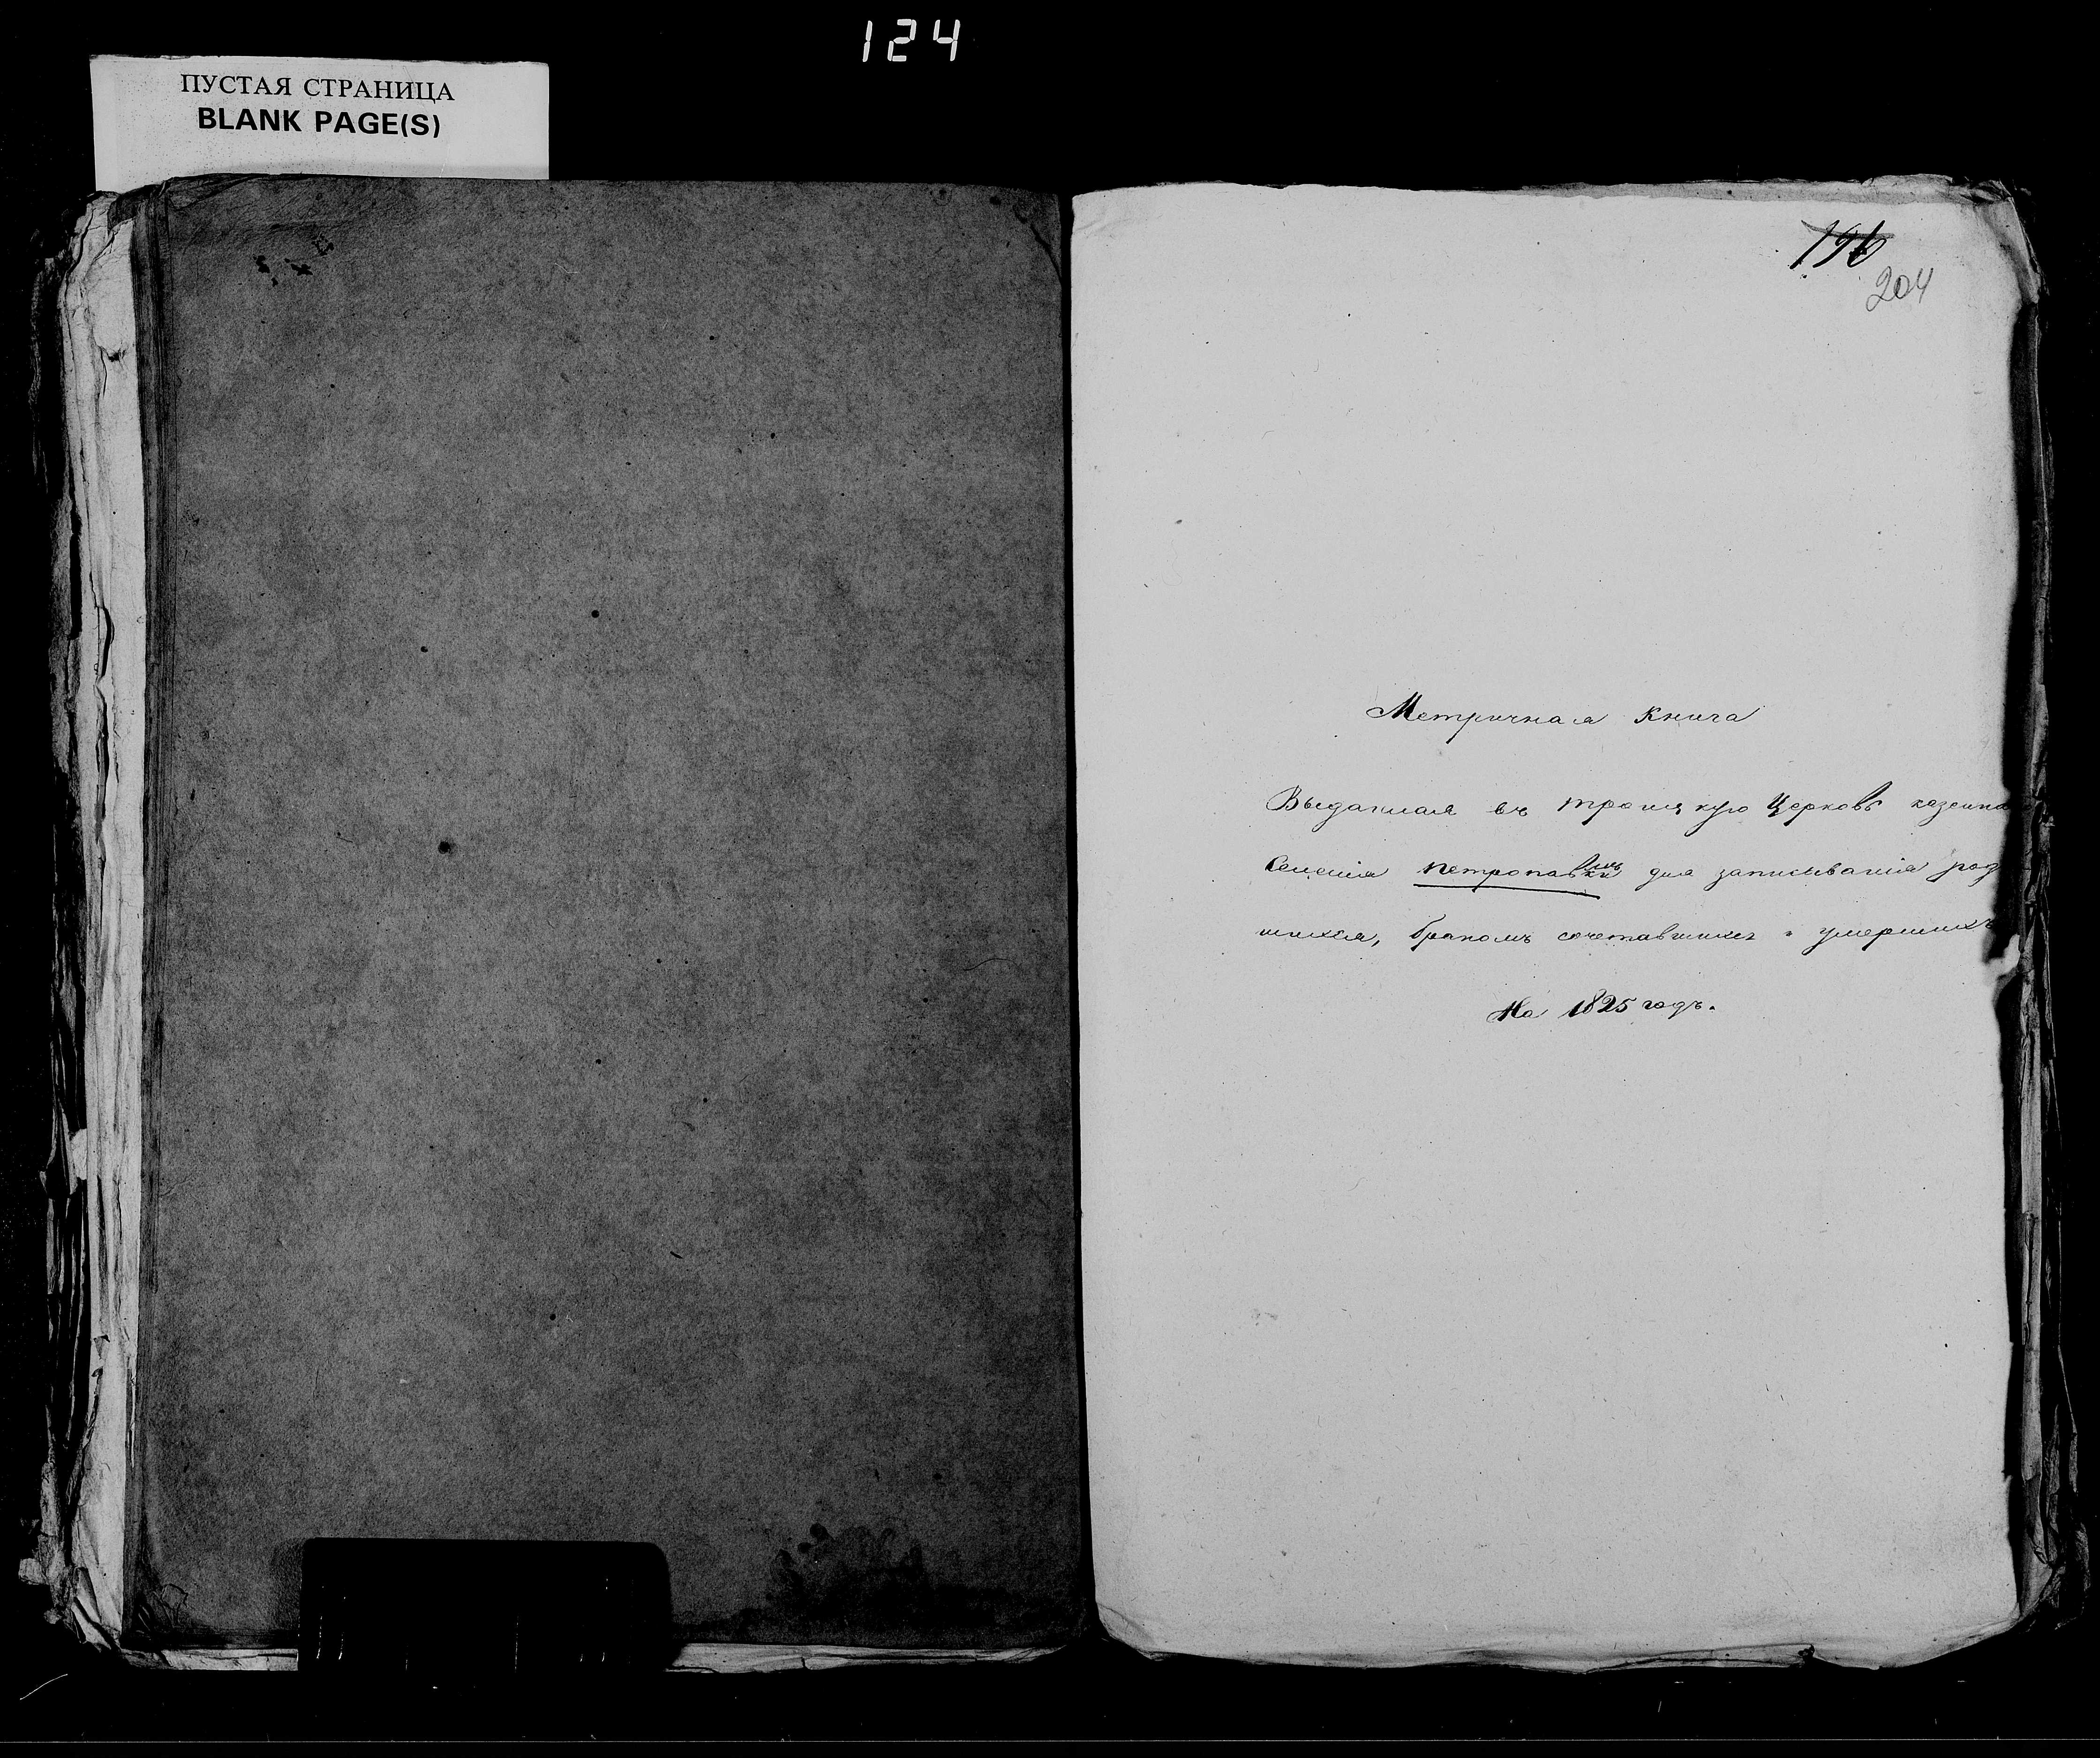 124
ПУСТАЯ СТРАНИЦА
BLANK PAGE(S)
204
Метричная Книга
Выданная въ троицкую Церковь казенна
Селенія для записыванія род
шихся, бракомъ сочетавшихся и умершихъ
На 1825 годъ.